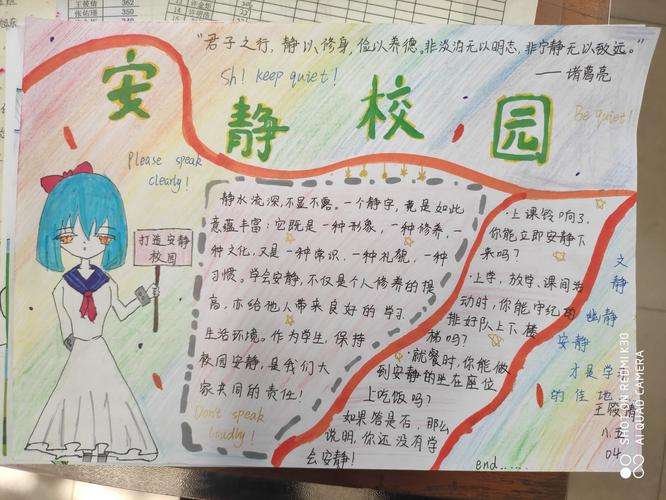 "君子之行，静以修身，俭以养德。非淡泊无以明志，非宁静无以致远。"
——诸葛亮
Sh! keep quiet!
安静校园
Be quiet!
Please speak
clearly!
打造安静
校园
静水流深，不显不露。一个静字，竟是如此
意蕴丰富：它既是一种形象，一种修养，一
种文化，又是一种常识，一种礼貌，一种
习惯。学会安静，不仅是个人修养的提
高，亦给他人带来良好的学习
生活环境。作为学生，保持
校园安静，是我们大
家共同的责任！
Don't speak
loudly!
·上课铃响了，
你能立即安静下
来吗？
·上学，放学，课间活
动时，你能守纪的
排好队上下楼
梯吗？
·就餐时，你能做
到安静的坐在座位
上吃饭吗？
如果答是否，那么
说明，你还没有学
会安静！
end......
文静
幽静
安静
才是学
的佳地
王
八.五
04
SHOT ON REDMI K30
AI QUAD CAMERA
王筱倩
362
张佑瑶
350